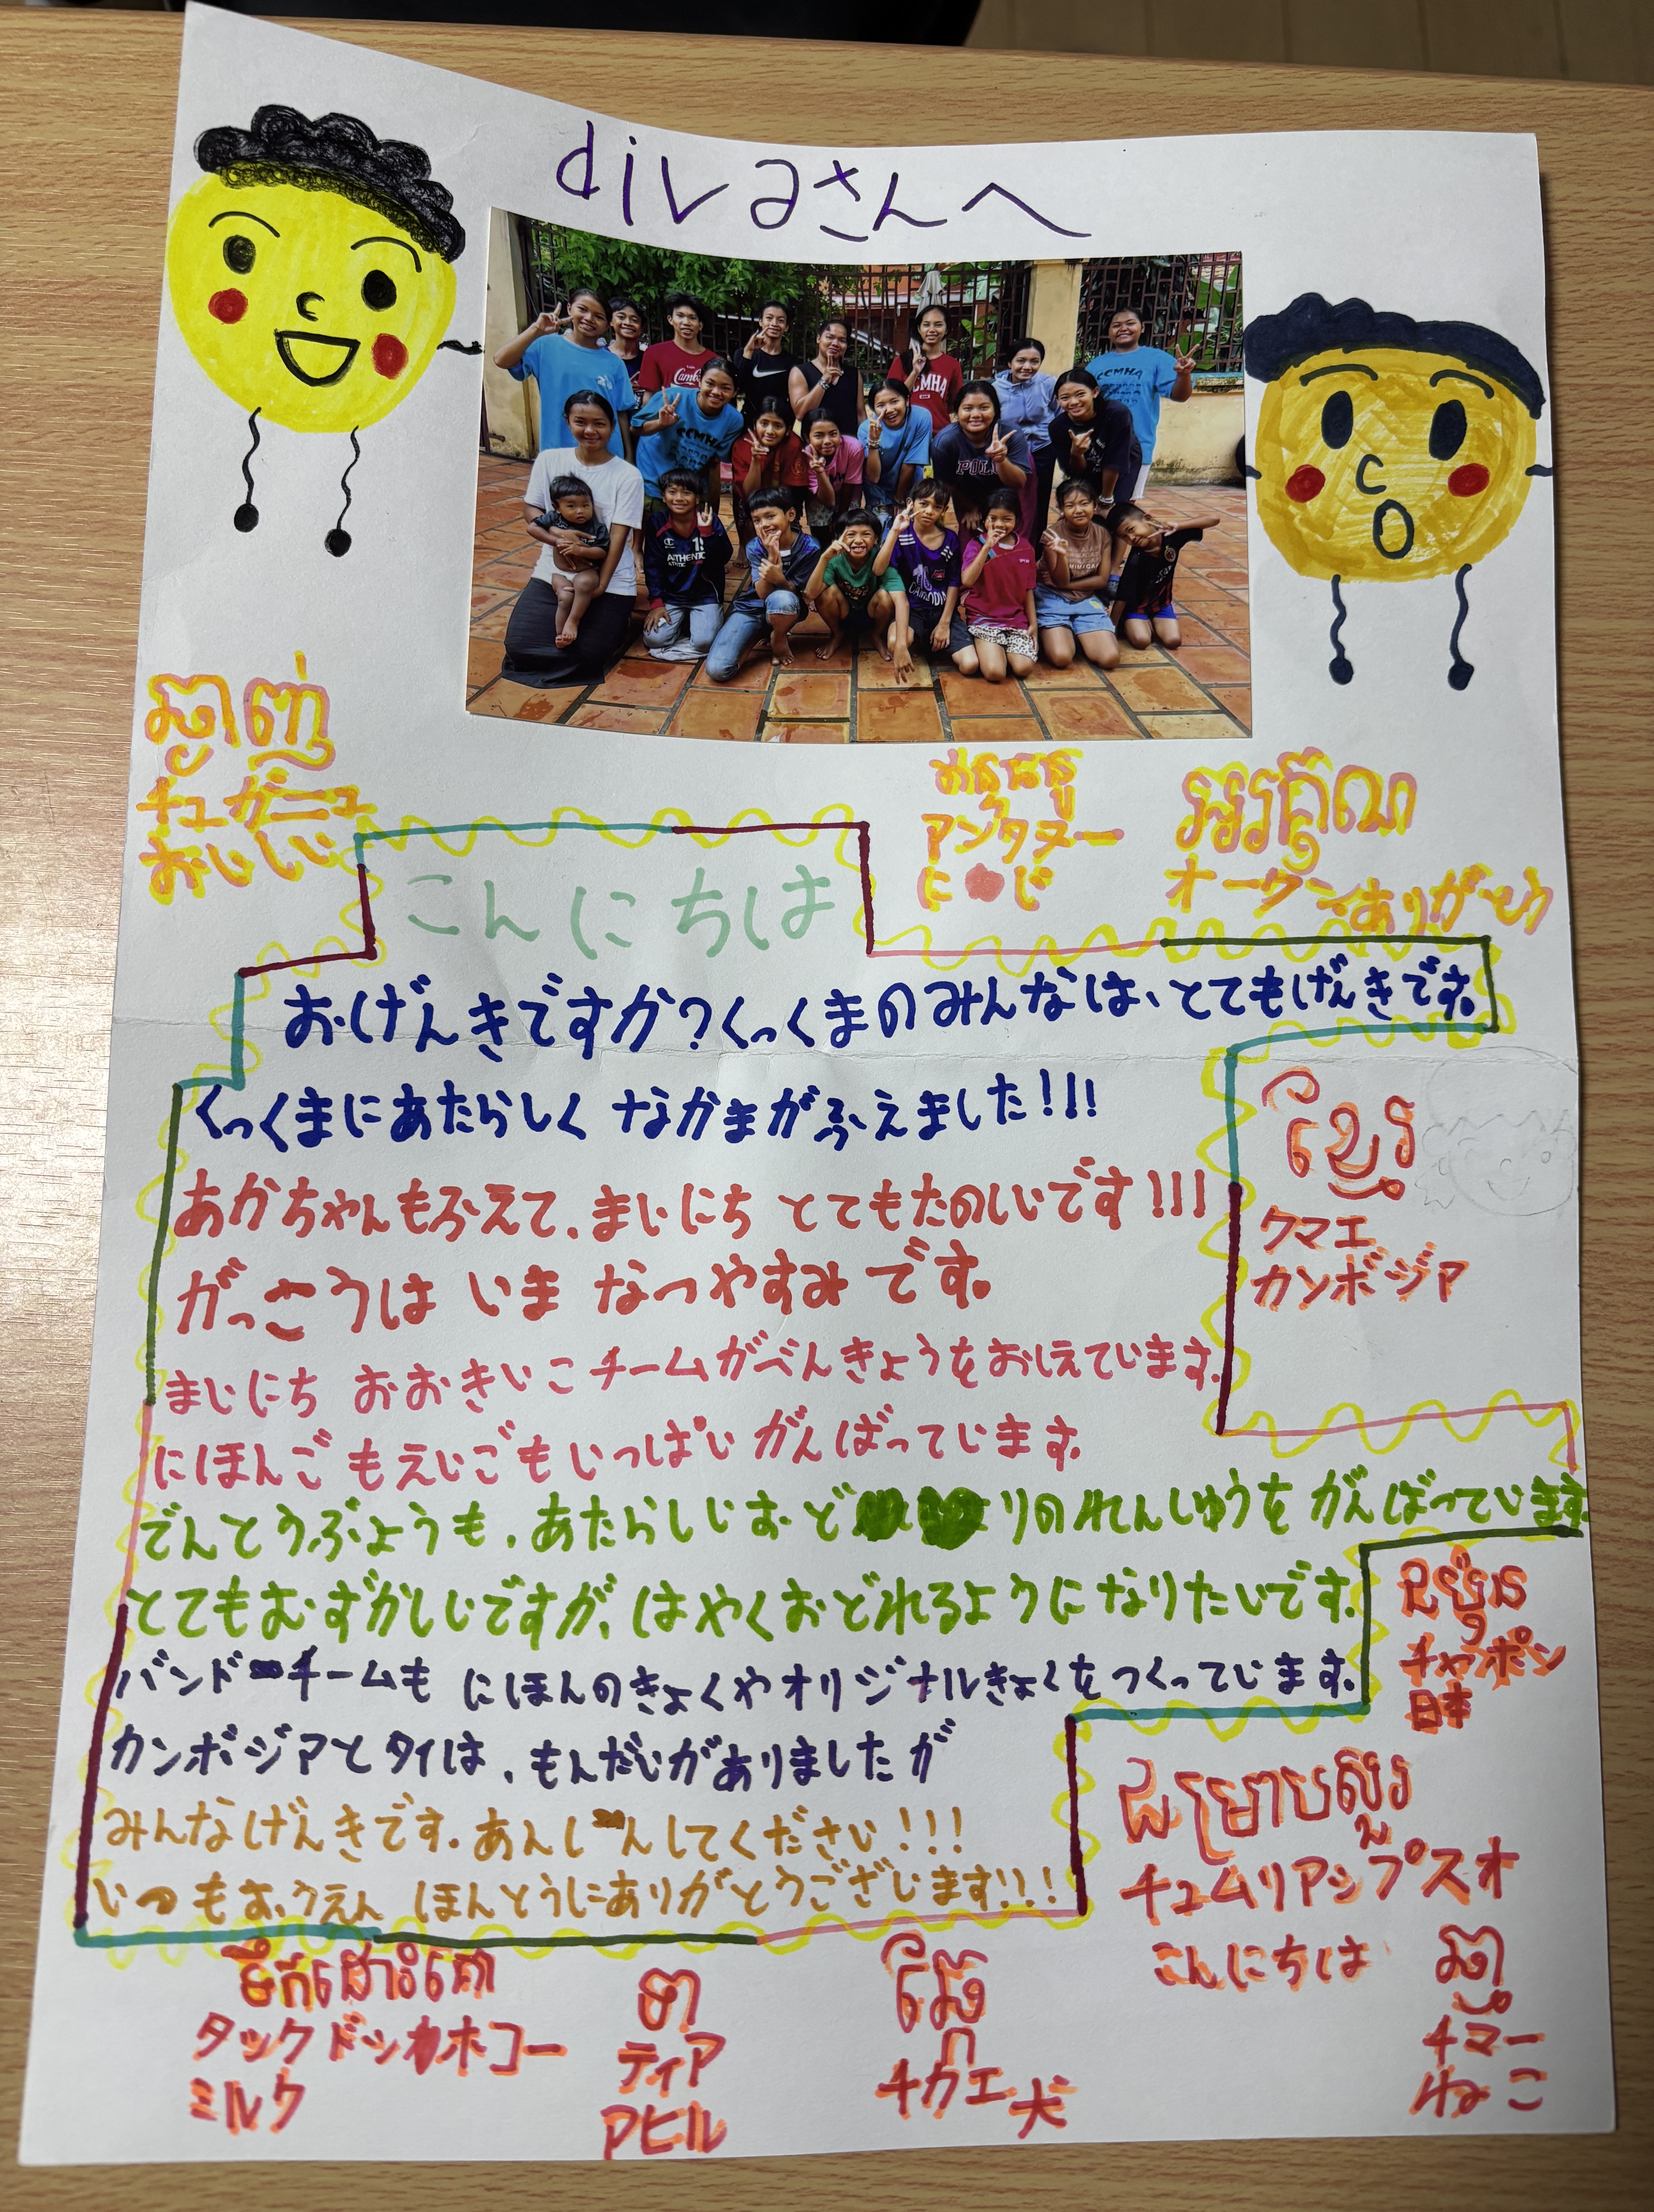 divaさんへ
ឆ្ងាញ់
チュガニュ
おいしい
ឥន្ទធនូ
アンタヌー
にじ
អរគុណ
オークン
ありがとう
こんにちは
おげんきですか?くっくまのみんなは、とてもげんきです。
くっくまにあたらしく なかまがふえました!!!
あかちゃんもふえて、まいにち とてもたのしいです!!!
がっこうは いま なつやすみ です。
まいにち おおきいこチームがべんきょうをおしえています。
にほんごもえいごもいっぱい がんばっています。
でんとうぶようも、あたらしいおどりのれんしゅうを がんばっています
とてもむずかしいですが、はやくおどれるようになりたいです。
バンドチームも にほんのきょくやオリジナルきょくをつくっています。
カンボジアとタイは、もんだいがありましたが
みんなげんきです。あんしんしてください!!!
いつもおうえん ほんとうにありがとうございます!!!
ខ្មែរ
クマエ
カンボジア
ជប៉ុន
チャポン
日本
ជម្រាបសួរ
チュムリアップスオ
こんにちは
ទឹកដោះគោ
タックドッホコー
ミルク
ទា
ティア
アヒル
ឆ្កែ
チカエ
犬
ឆ្មា
チマー
ねこ
CCMHA
CCMHA
CCMHA
POLO
AUTHENTIC
CAMBODIA